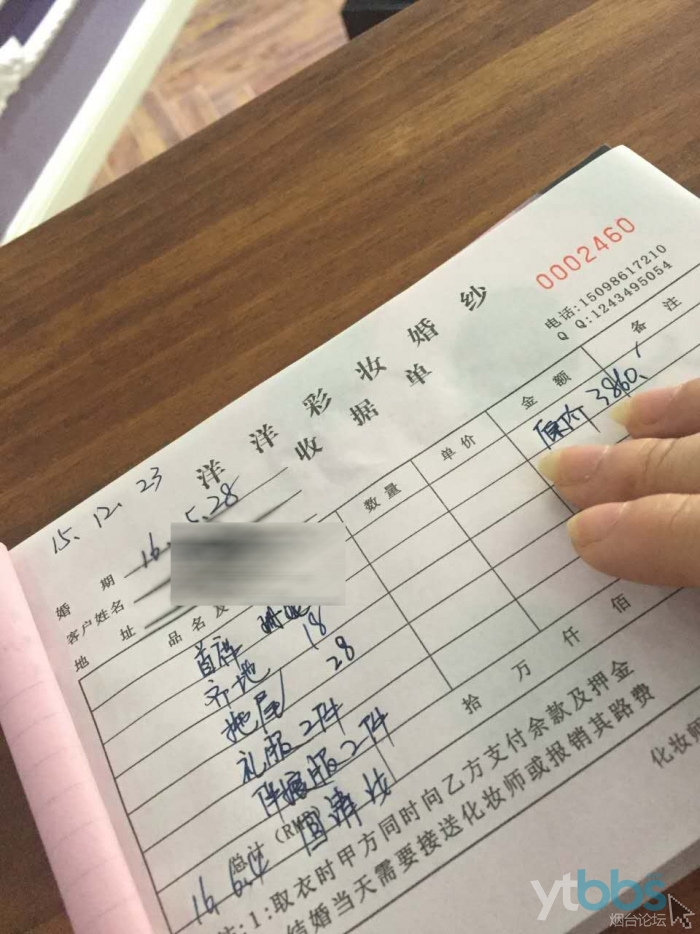 0002460
电话:15098617210
Q Q:1243495054
洋洋彩妆婚纱
收据单
15.12.23
婚 期 16.5.28
客户姓名
地 址
品名及 数量 单价 金额 备注
原价 3860
首样
齐地 18
拖尾 28
礼服2件
伴娘服2件
总计(RMB) 拾 万 仟 佰
注:1:取衣时甲方同时向乙方支付余款及押金
结婚当天需要接送化妆师或报销其路费
化妆师
ytbbs
烟台论坛